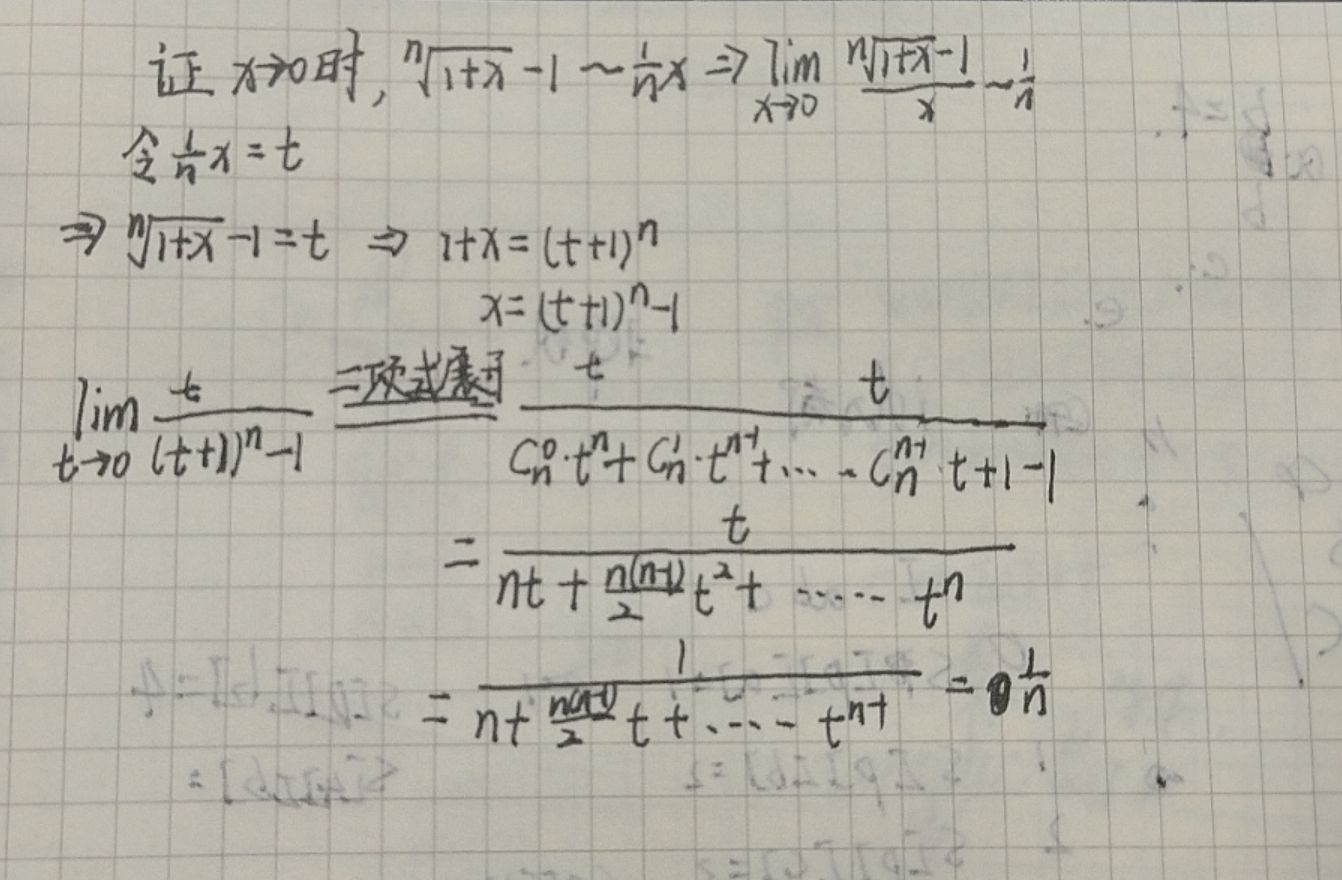 证 x→0时, ⁿ√(1+x) -1 ~ 1/n x ⇒ lim x→0 (ⁿ√(1+x) -1)/x ~ 1/n
令 1/n x = t
⇒ ⁿ√(1+x) -1 = t ⇒ 1+x = (t+1)ⁿ
x = (t+1)ⁿ-1
lim t→0 t/((t+1)ⁿ-1) 二项式展开 t t/(C⁰ₙ·tⁿ + C¹ₙ·tⁿ⁻¹ + ... - Cⁿ⁻¹ₙ·t+1-1)
= t/(nt + n(n-1)/2 t² + ······ tⁿ)
= 1/(n + n(n-1)/2 t + ····· tⁿ⁻¹) = 1/n